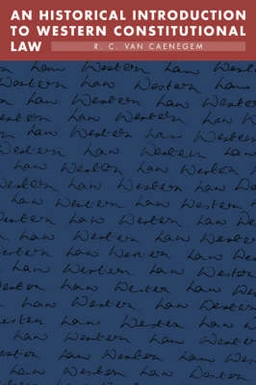 AN HISTORICAL INTRODUCTION
TO WESTERN CONSTITUTIONAL
LAW R. C. VAN CAENEGEM
Law Western Law
Western Law Western Law
Law Western Law Western
Law Western Law
Law Western Law Western
Western Law Western Law
Law Western Law Western
Western Law Western Law
Law Western Law Western
Western Law Western Law
Law Western Law Western
Law Western Law
Law Western Law Western
Western Law Western Law
Law Western Law Western
Law Western Law
Law Western Law Western
Law Western Law
Law Western Law Western